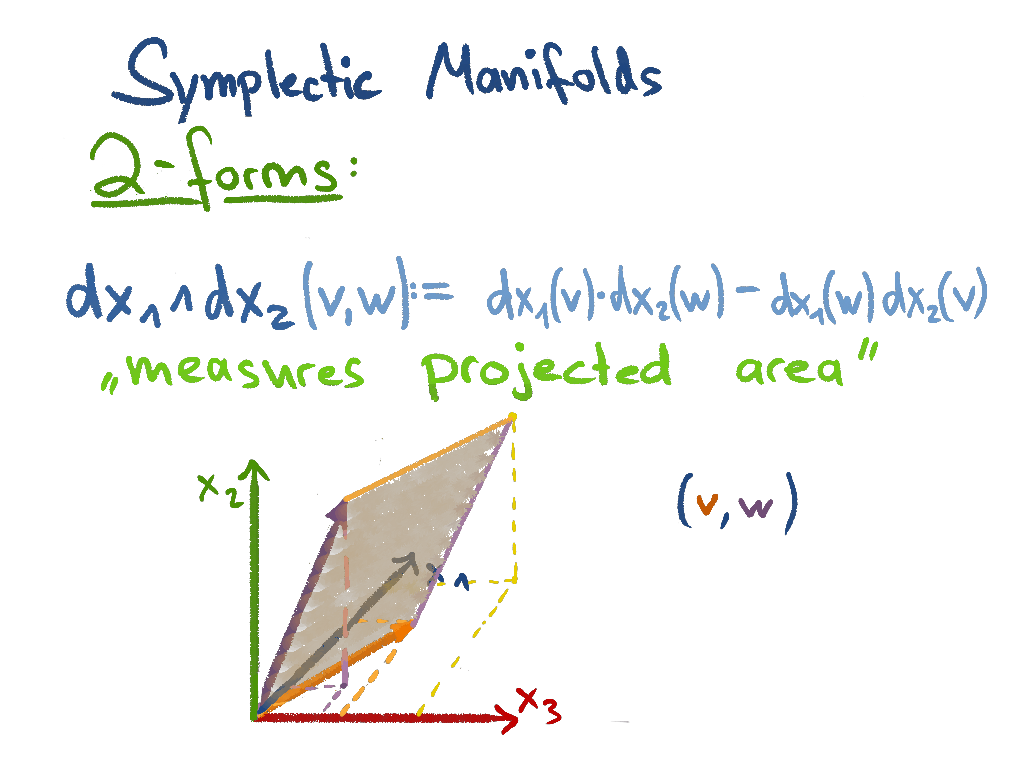 Symplectic Manifolds
2-forms:
dx₁∧dx₂(v,w):= dx₁(v)·dx₂(w) - dx₁(w)dx₂(v)
„measures projected area"
x₂
(v,w)
x₁
x₃